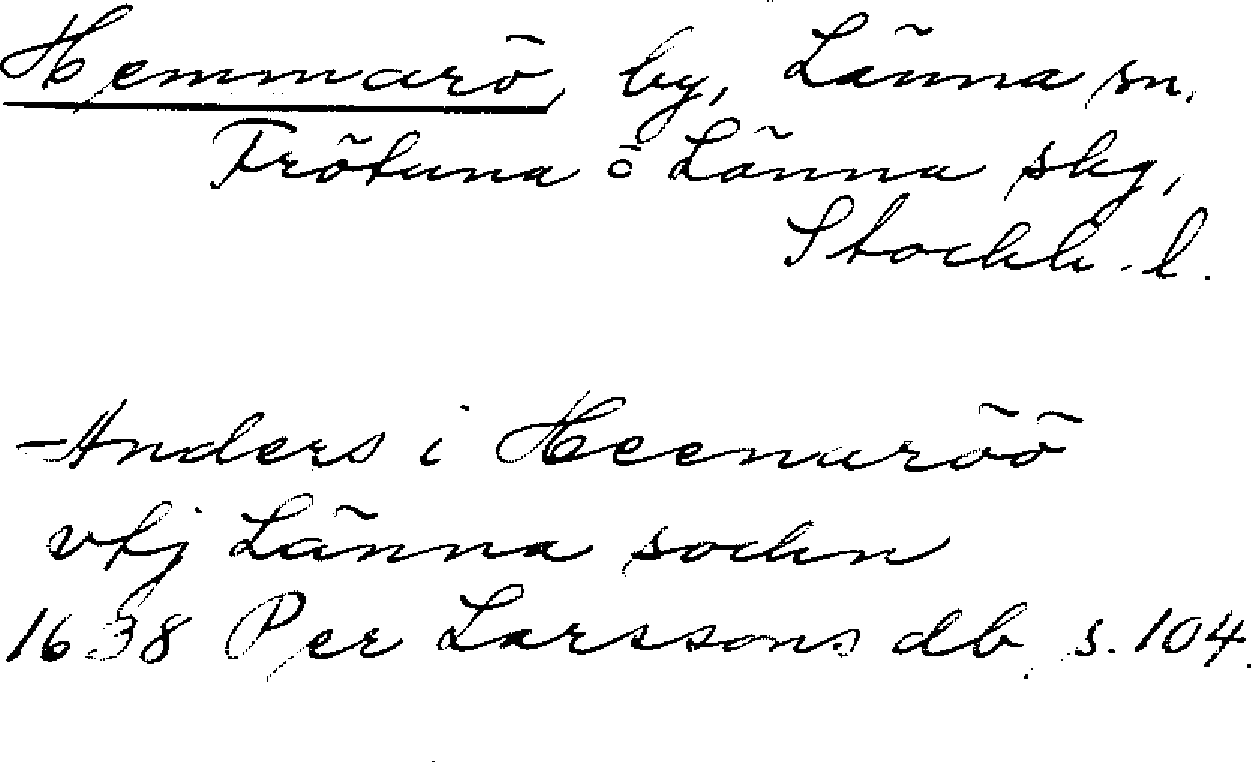 Hemmarö, by, Länna sn.
Frötuna o Länna skg,
Stockh. l.
Anders i Heenaröö
vtj Länna sochn
1638 Per Larssons db, s. 104.